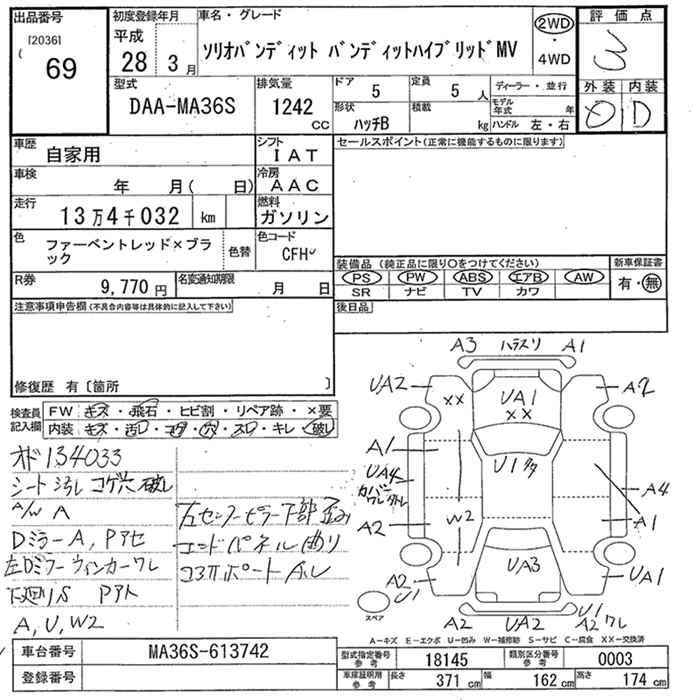 出品番号
[2036]
69
初度登録年月
平成
28年3月
車名・グレード
ソリオバンディット バンディットハイブリッドMV
2WD
・
4WD
評価点
3
外装 内装
D
型式
DAA-MA36S
排気量
1242
CC
ドア
5
定員
5人
形状
ハッチB
積載
kg
ディーラー・並行
モデル年式 年
ハンドル 左・右
車歴
自家用
シフト
IAT
車検
年 月( 日)
冷房
AAC
走行
13万4千032 km
燃料
ガソリン
色
ファーベントレッド×ブラック
色替
色コード
CFH
R券
9,770円
名変通知期限
月 日
セールスポイント(正常に機能するものに限ります)
装備品(純正品に限り○をつけてください)
PS PW ABS エアB AW
SR ナビ TV カワ
新車保証書
有・無
後日品
注意事項申告欄(不具合内容等は具体的に記入して下さい)
修復歴 有〔箇所 〕
検査員記入欄
FW キズ・飛石・ヒビ割・リペア跡・×要
内装 キズ・汚レ・コゲ・穴・スレ・キレ・破レ
オド 134033
シート汚レ コゲ穴 破レ
A/W A
Dミラー A, Pアセ
左Dミラー ウィンカーワレ
下廻りS Pアト
A, U, W2
左センターピラー下部歪み
エンドパネル曲り
コアサポート ハレ
A3 ハラスリ A1
UA2
XX
UA1
XX
A2
A1
UA4
カバーワレ
U1タタ
A4
A2
W2
A1
A2
U1
UA3
UA1
スペア
A2
UA2
U1
A2 ワレ
A-キズ E-エクボ U-凹み W-補修跡 S-サビ C-腐食 XX-交換済
車台番号
MA36S-613742
登録番号
型式指定番号
参考
18145
類別区分番号
参考
0003
車庫証明用
参考
長さ 371 cm
幅 162 cm
高さ 174 cm